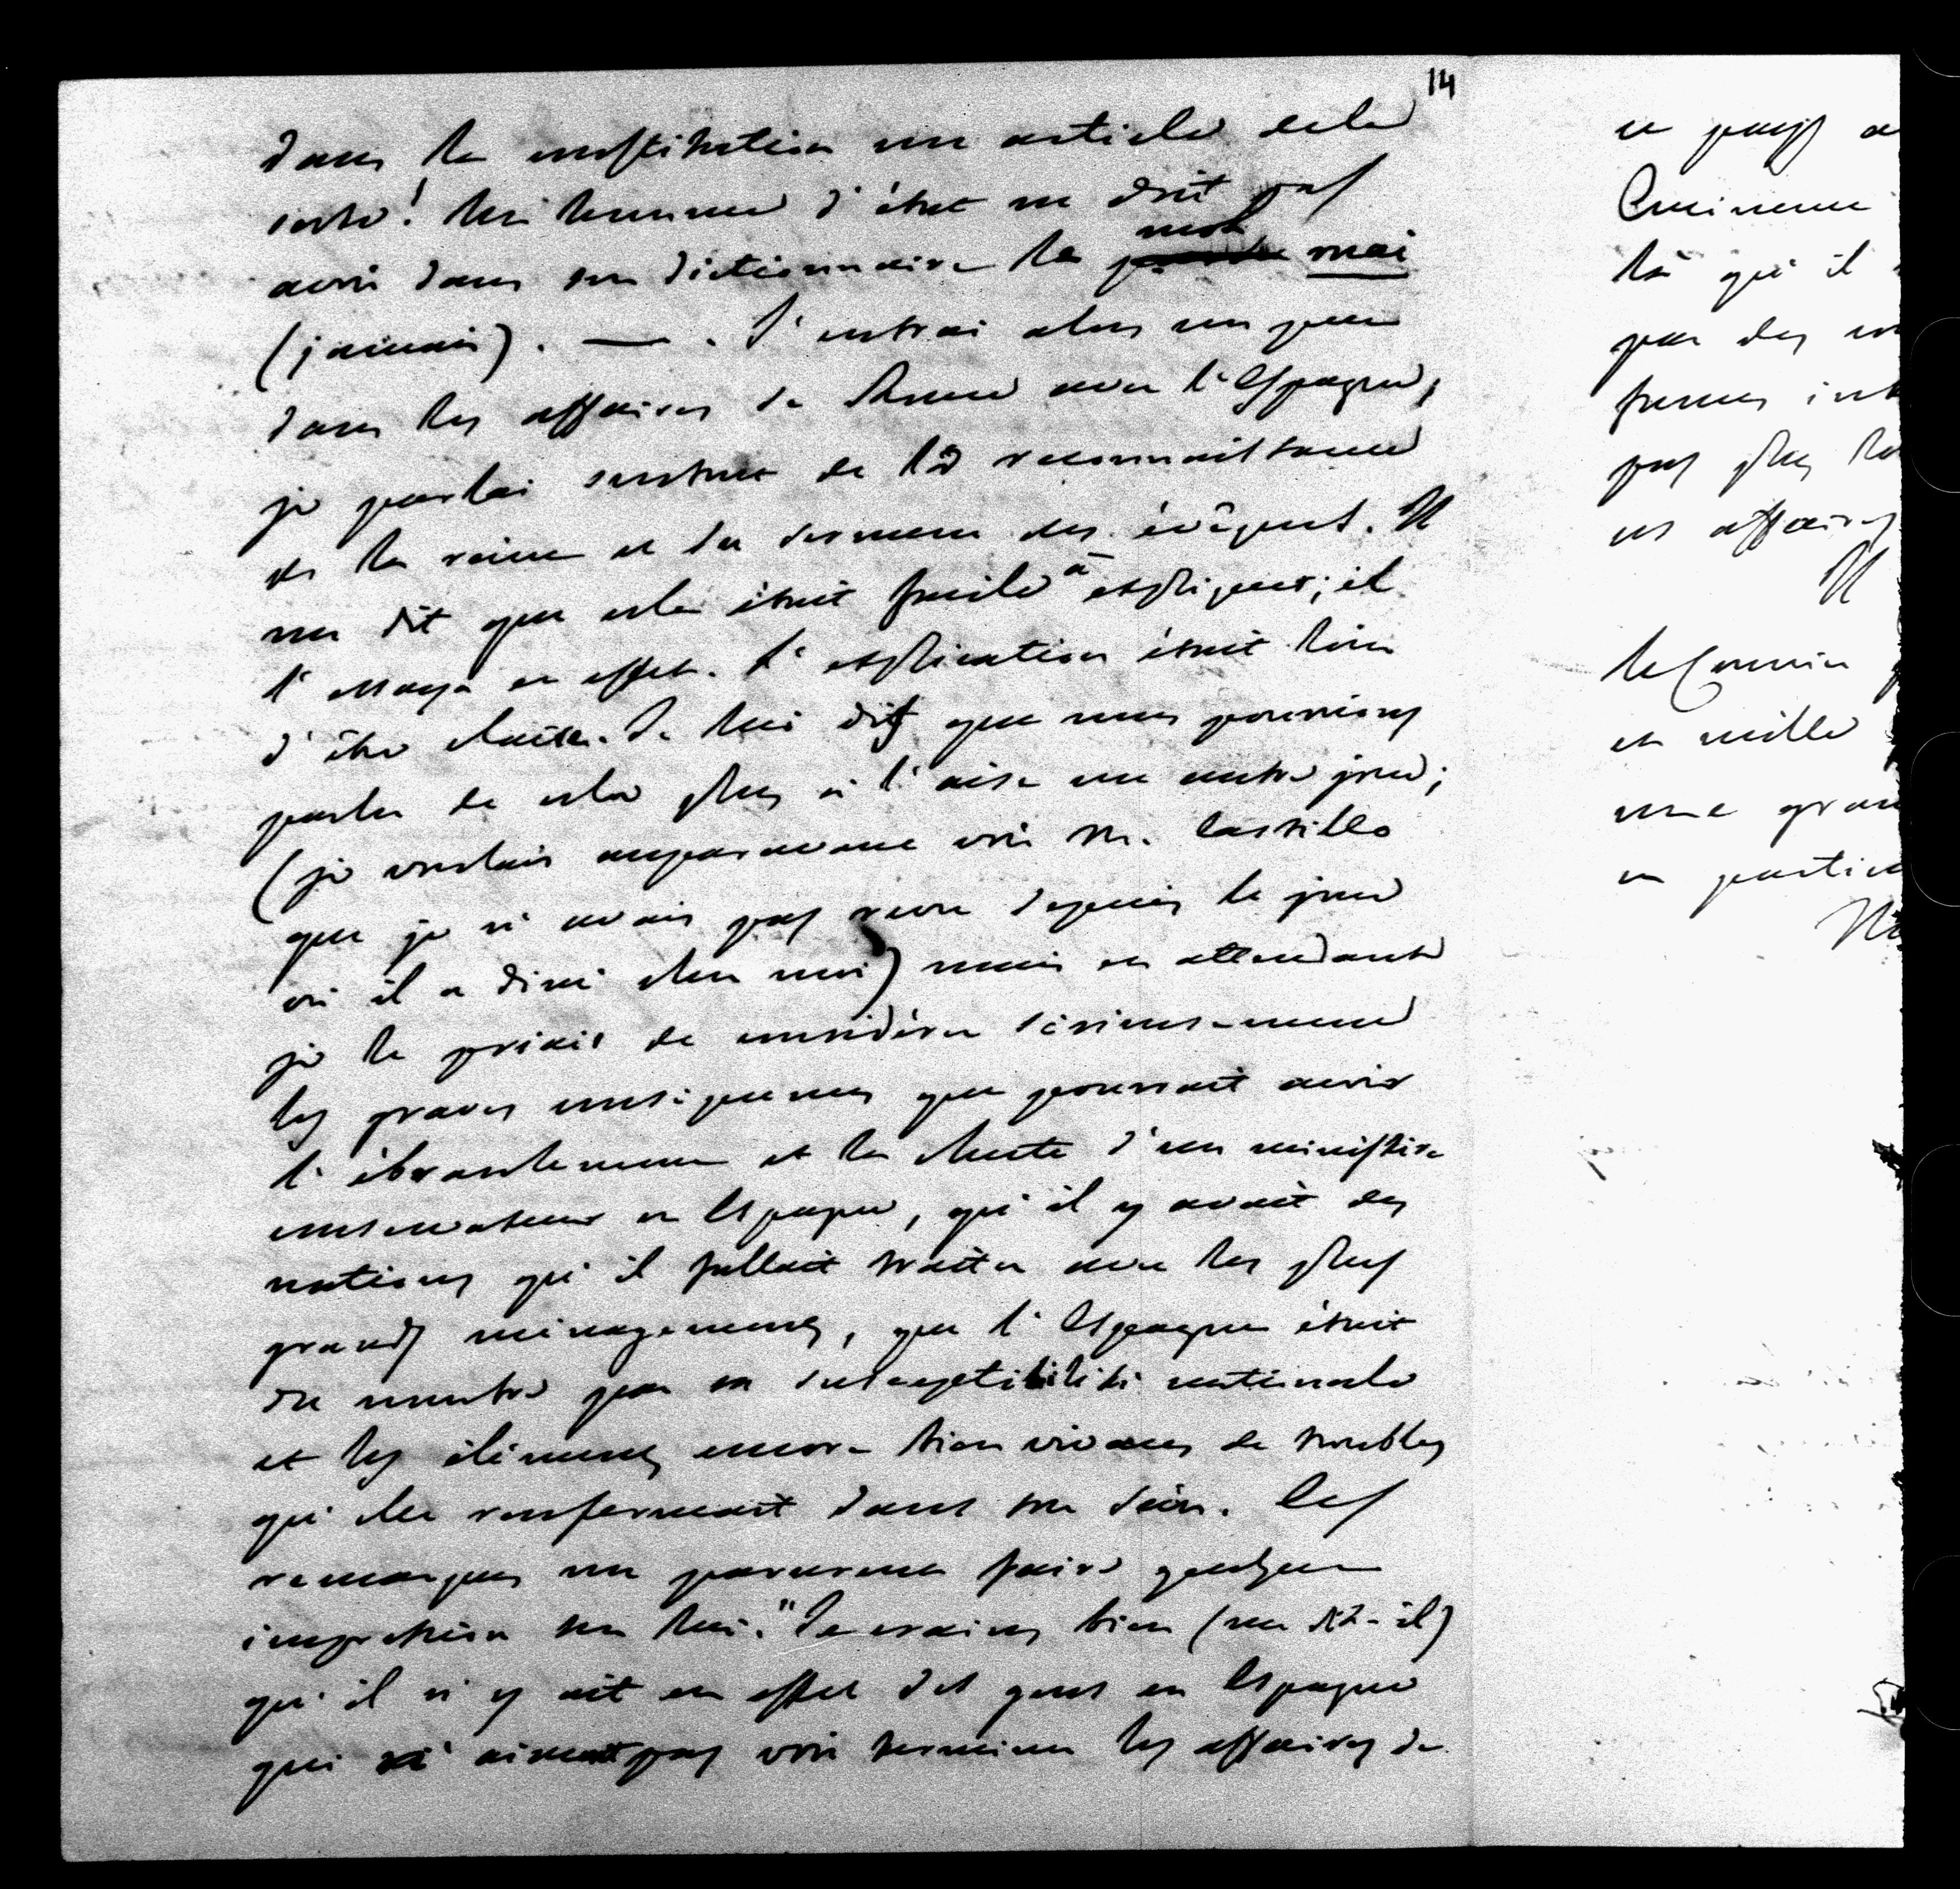 14
dans la constitution un article de la
sorte! Un homme d'état ne doit pas
avoir dans son dictionnaire le mot mai
(jamais). — . J'entrai alors un peu
dans les affaires de Rome avec l'Espagne,
je parlai surtout de la reconnaissance
de la reine et du serment des évêques. Il
me dit que cela était facile à expliquer; il
l'essaya en effet. L'explication était loin
d'être claire. Je lui dis que nous pourrions
parler de cela plus à l'aise un autre jour;
(je voulais auparavant voir M. Castillo
que je n'avais pas revu depuis le jour
où il a diné chez moi) mais en attendant
je le priais de considérer sérieusement
les graves conséquences que pourrait avoir
l'ébranlement et la chute d'un ministère
conservateur en Espagne, qu'il y avait des
nations qu'il fallait traiter avec les plus
grands ménagements, que l'Espagne était
du nombre par sa susceptibilité nationale
et les éléments encore bien vivaces de troubles
qu'elle renfermait dans son sein. Ces
remarques me parurent faire quelque
impression sur lui. "Je crains bien (me dit-il)
qu'il n'y ait en effet des gens en Espagne
qui n'aiment pas voir terminer les affaires de
ce pays a
Eminence
là qu'il
par des
pas plus
ces affaires
Il
le Courrier
et mille
une gran
en partic